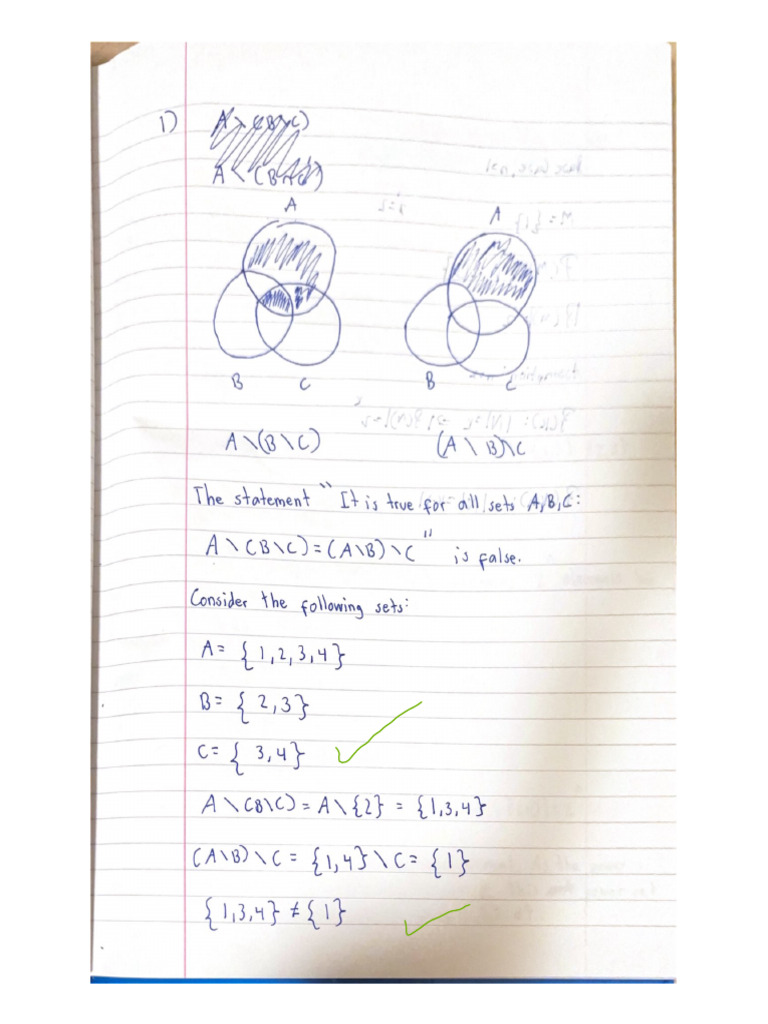 1)
A B C
A B C
A \ (B \ C) (A \ B) \ C
The statement " It is true for all sets A, B, C:
A \ (B \ C) = (A \ B) \ C " is false.
Consider the following sets:
A = { 1, 2, 3, 4 }
B = { 2, 3 }
C = { 3, 4 }
A \ (B \ C) = A \ {2} = {1, 3, 4}
(A \ B) \ C = {1, 4} \ C = {1}
{1, 3, 4} ≠ {1}